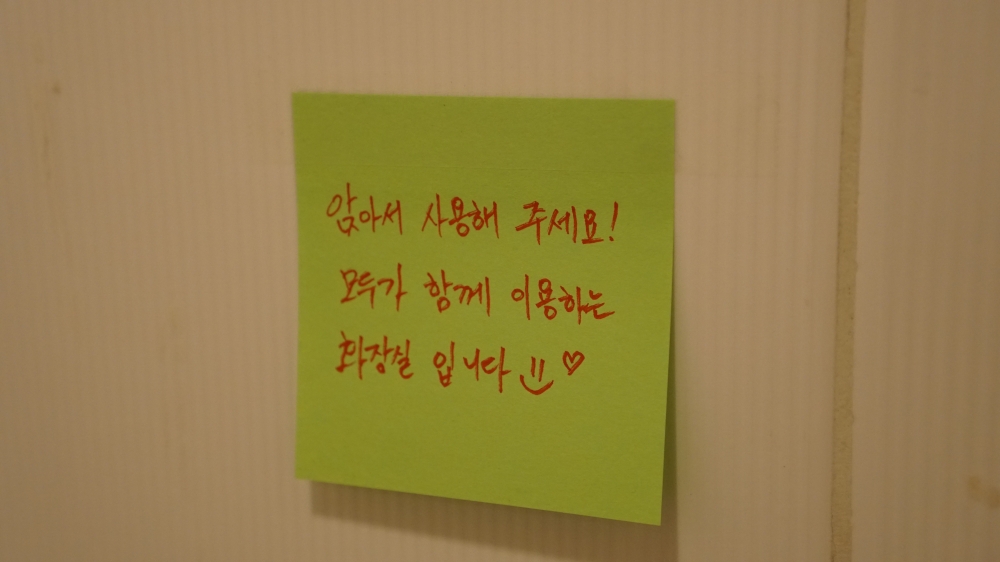 앉아서 사용해 주세요!
모두가 함께 이용하는
화장실 입니다 ♡